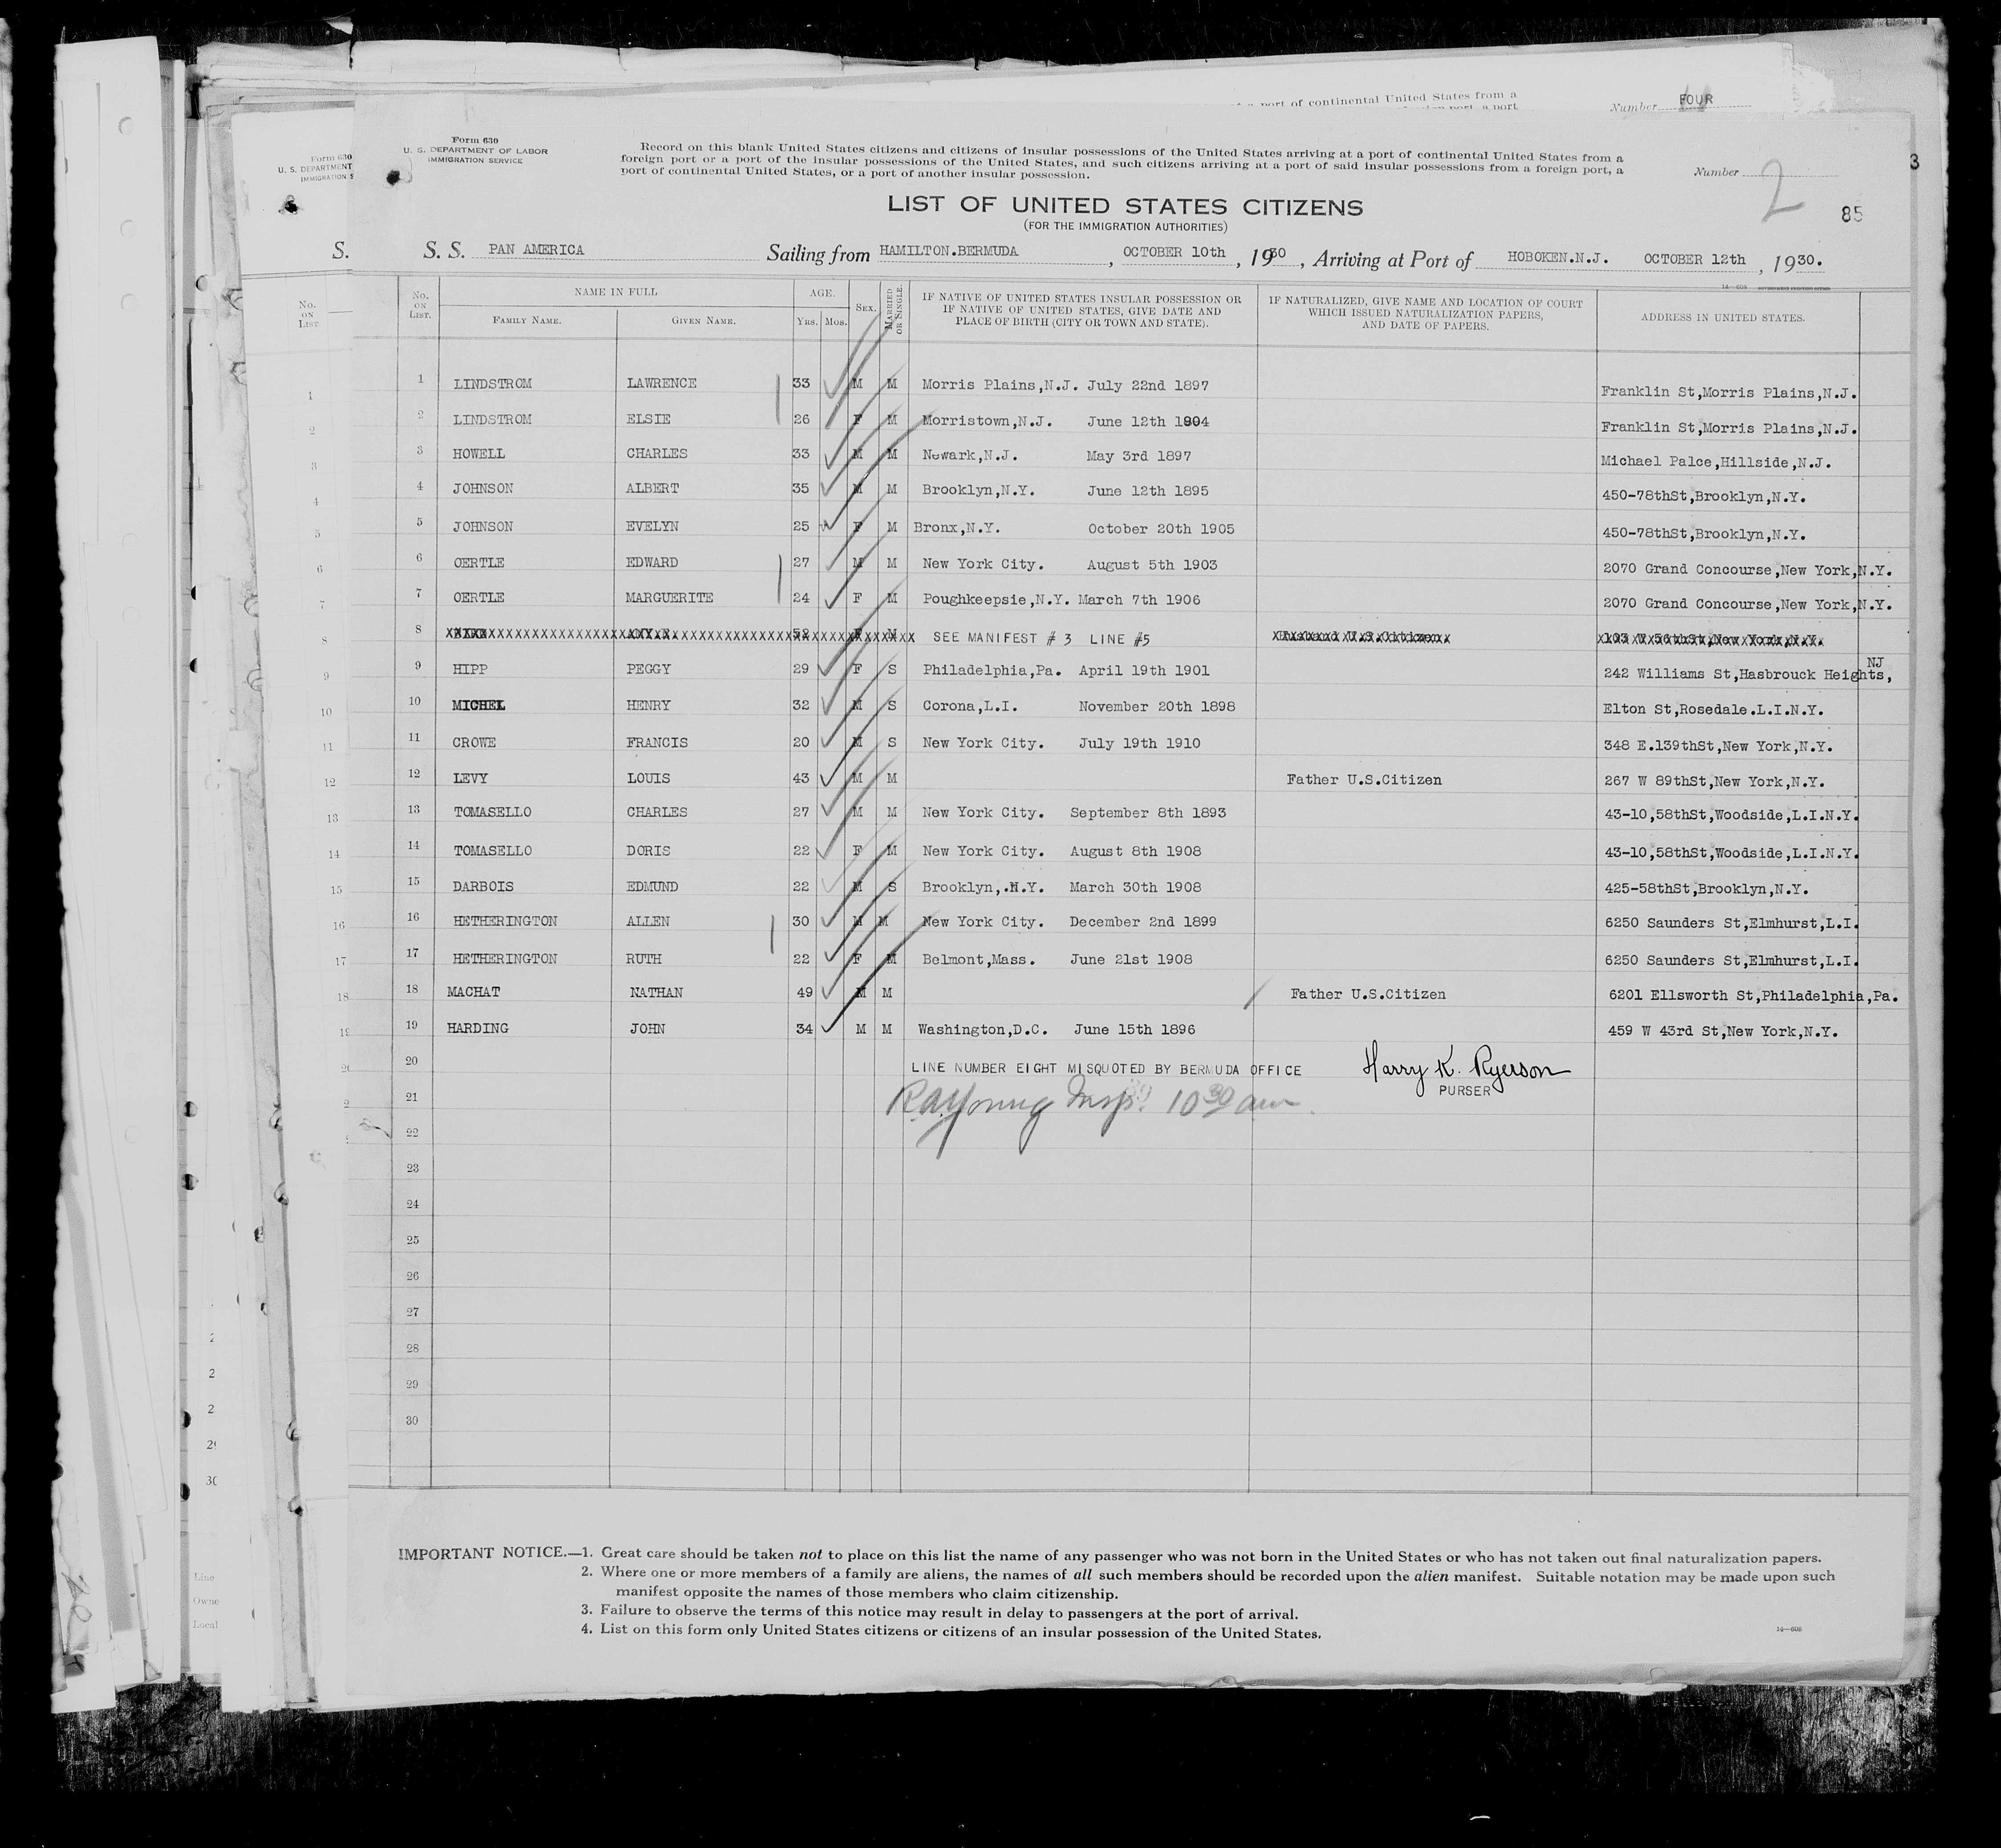 port of continental United States from a
Number FOUR
Form 630
U. S. DEPARTMENT
IMMIGRATION S
Form 630
U. S. DEPARTMENT OF LABOR
IMMIGRATION SERVICE
Record on this blank United States citizens and citizens of insular possessions of the United States arriving at a port of continental United States from a
foreign port or a port of the insular possessions of the United States, and such citizens arriving at a port of said insular possessions from a foreign port, a
port of continental United States, or a port of another insular possession.
Number 2
3
85
LIST OF UNITED STATES CITIZENS
(FOR THE IMMIGRATION AUTHORITIES)
S. S. PAN AMERICA Sailing from HAMILTON.BERMUDA, OCTOBER 10th, 1930, Arriving at Port of HOBOKEN.N.J. OCTOBER 12th, 1930.
No. ON LIST. NAME IN FULL FAMILY NAME. GIVEN NAME. AGE. YRS. MOS. SEX. MARRIED OR SINGLE. IF NATIVE OF UNITED STATES INSULAR POSSESSION OR IF NATIVE OF UNITED STATES, GIVE DATE AND PLACE OF BIRTH (CITY OR TOWN AND STATE). IF NATURALIZED, GIVE NAME AND LOCATION OF COURT WHICH ISSUED NATURALIZATION PAPERS, AND DATE OF PAPERS. ADDRESS IN UNITED STATES.
1 LINDSTROM LAWRENCE 33 M M Morris Plains,N.J. July 22nd 1897 Franklin St,Morris Plains,N.J.
2 LINDSTROM ELSIE 26 F M Morristown,N.J. June 12th 1904 Franklin St,Morris Plains,N.J.
3 HOWELL CHARLES 33 M M Newark,N.J. May 3rd 1897 Michael Palce,Hillside,N.J.
4 JOHNSON ALBERT 35 M M Brooklyn,N.Y. June 12th 1895 450-78thSt,Brooklyn,N.Y.
5 JOHNSON EVELYN 25 F M Bronx,N.Y. October 20th 1905 450-78thSt,Brooklyn,N.Y.
6 OERTLE EDWARD 27 M M New York City. August 5th 1903 2070 Grand Concourse,New York,N.Y.
7 OERTLE MARGUERITE 24 F M Poughkeepsie,N.Y. March 7th 1906 2070 Grand Concourse,New York,N.Y.
8 52 F M SEE MANIFEST # 3 LINE #5 Husband U.S.Citizen 103 W 56thSt,New York,N.Y.
9 HIPP PEGGY 29 F S Philadelphia,Pa. April 19th 1901 242 Williams St,Hasbrouck Heights, NJ
10 MICHEL HENRY 32 M S Corona,L.I. November 20th 1898 Elton St,Rosedale.L.I.N.Y.
11 CROWE FRANCIS 20 M S New York City. July 19th 1910 348 E.139thSt,New York,N.Y.
12 LEVY LOUIS 43 M M Father U.S.Citizen 267 W 89thSt,New York,N.Y.
13 TOMASELLO CHARLES 27 M M New York City. September 8th 1893 43-10,58thSt,Woodside,L.I.N.Y.
14 TOMASELLO DORIS 22 F M New York City. August 8th 1908 43-10,58thSt,Woodside,L.I.N.Y.
15 DARBOIS EDMUND 22 M S Brooklyn,.N.Y. March 30th 1908 425-58thSt,Brooklyn,N.Y.
16 HETHERINGTON ALLEN 30 M M New York City. December 2nd 1899 6250 Saunders St,Elmhurst,L.I.
17 HETHERINGTON RUTH 22 F M Belmont,Mass. June 21st 1908 6250 Saunders St,Elmhurst,L.I.
18 MACHAT NATHAN 49 M M Father U.S.Citizen 6201 Ellsworth St,Philadelphia,Pa.
19 HARDING JOHN 34 M M Washington,D.C. June 15th 1896 459 W 43rd St,New York,N.Y.
20 LINE NUMBER EIGHT MISQUOTED BY BERMUDA OFFICE Harry K. Ryerson
PURSER
21 RAYoung Insp. 10 30 am
22
23
24
25
26
27
28
29
30
IMPORTANT NOTICE.—1. Great care should be taken not to place on this list the name of any passenger who was not born in the United States or who has not taken out final naturalization papers.
2. Where one or more members of a family are aliens, the names of all such members should be recorded upon the alien manifest. Suitable notation may be made upon such
manifest opposite the names of those members who claim citizenship.
3. Failure to observe the terms of this notice may result in delay to passengers at the port of arrival.
4. List on this form only United States citizens or citizens of an insular possession of the United States.
14—608